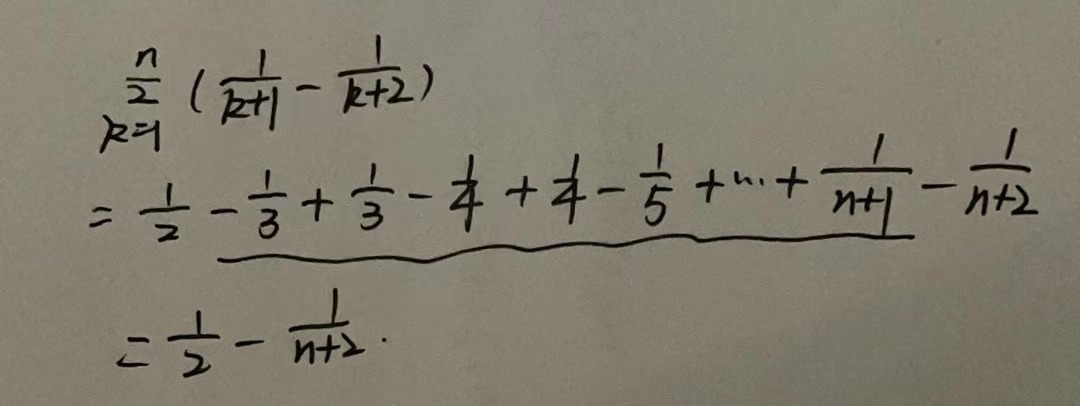 $\sum_{k=1}^{n} \left( \frac{1}{k+1} - \frac{1}{k+2} \right)$
$= \frac{1}{2} - \frac{1}{3} + \frac{1}{3} - \frac{1}{4} + \frac{1}{4} - \frac{1}{5} + \cdots + \frac{1}{n+1} - \frac{1}{n+2}$
$= \frac{1}{2} - \frac{1}{n+2}.$